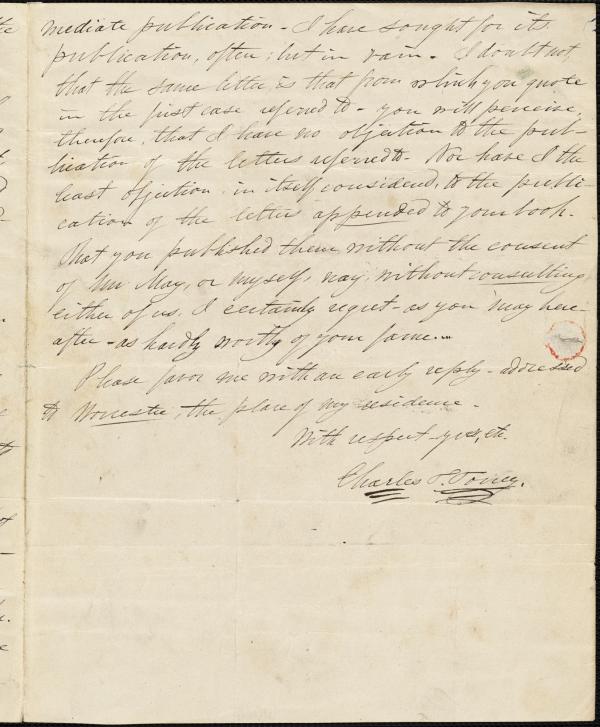 mediate publication - I have sought for its
publication, often; but in vain - I doubt not,
that the same letter, is that from which you quote
in the first case referred to - you will perceive,
therefore, that I have no objection to the pub-
lication of the letters referred to - Nor have I the
least objection, in itself considered, to the publi-
cation of the letters appended to your book.
That you published them, without the consent
of Mr May, or myself, nay, without consulting
either of us, I certainly regret - as you may here-
after - as hardly worthy of your fame...
Please favor me with an early reply - addressed
to Worcester, the place of my residence -
With respect yrs, etc.
Charles T. Torrey.